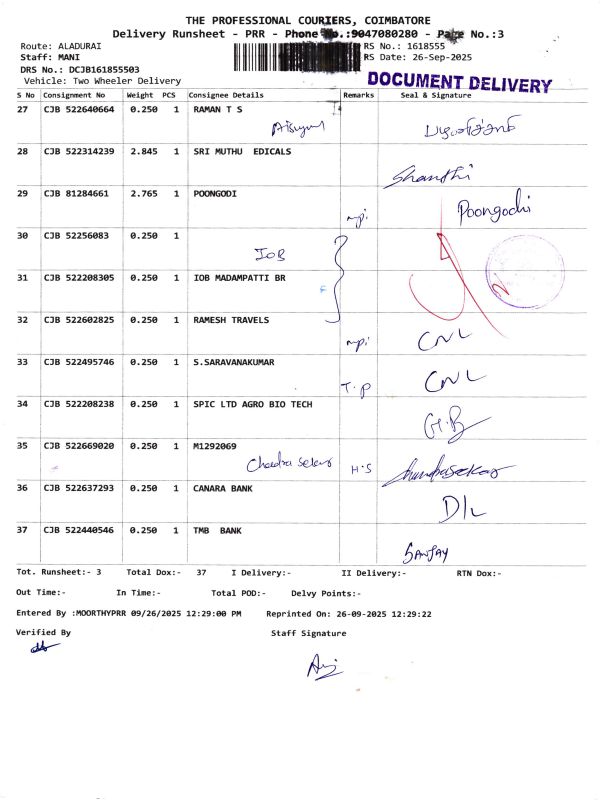 THE PROFESSIONAL COURIERS, COIMBATORE
Delivery Runsheet - PRR - Phone No.:9047080280 - Page No.:3
Route: ALADURAI RS No.: 1618555
Staff: MANI RS Date: 26-Sep-2025
DRS No.: DCJB161855503
Vehicle: Two Wheeler Delivery
DOCUMENT DELIVERY
S No Consignment No Weight PCS Consignee Details Remarks Seal & Signature
27 CJB 522640664 0.250 1 RAMAN T S
28 CJB 522314239 2.845 1 SRI MUTHU EDICALS
Shanthi
29 CJB 81284661 2.765 1 POONGODI
mpi Poongodi
30 CJB 52256083 0.250 1
IOB
31 CJB 522208305 0.250 1 IOB MADAMPATTI BR
32 CJB 522602825 0.250 1 RAMESH TRAVELS
mpi CNL
33 CJB 522495746 0.250 1 S.SARAVANAKUMAR
T.P CNL
34 CJB 522208238 0.250 1 SPIC LTD AGRO BIO TECH
G.B
35 CJB 522669020 0.250 1 M1292069
Chandra Sekar H.S Chandrasekar
36 CJB 522637293 0.250 1 CANARA BANK
D/L
37 CJB 522440546 0.250 1 TMB BANK
SANJAY
Tot. Runsheet:- 3 Total Dox:- 37 I Delivery:- II Delivery:- RTN Dox:-
Out Time:- In Time:- Total POD:- Delvy Points:-
Entered By :MOORTHYPRR 09/26/2025 12:29:00 PM Reprinted On: 26-09-2025 12:29:22
Verified By Staff Signature